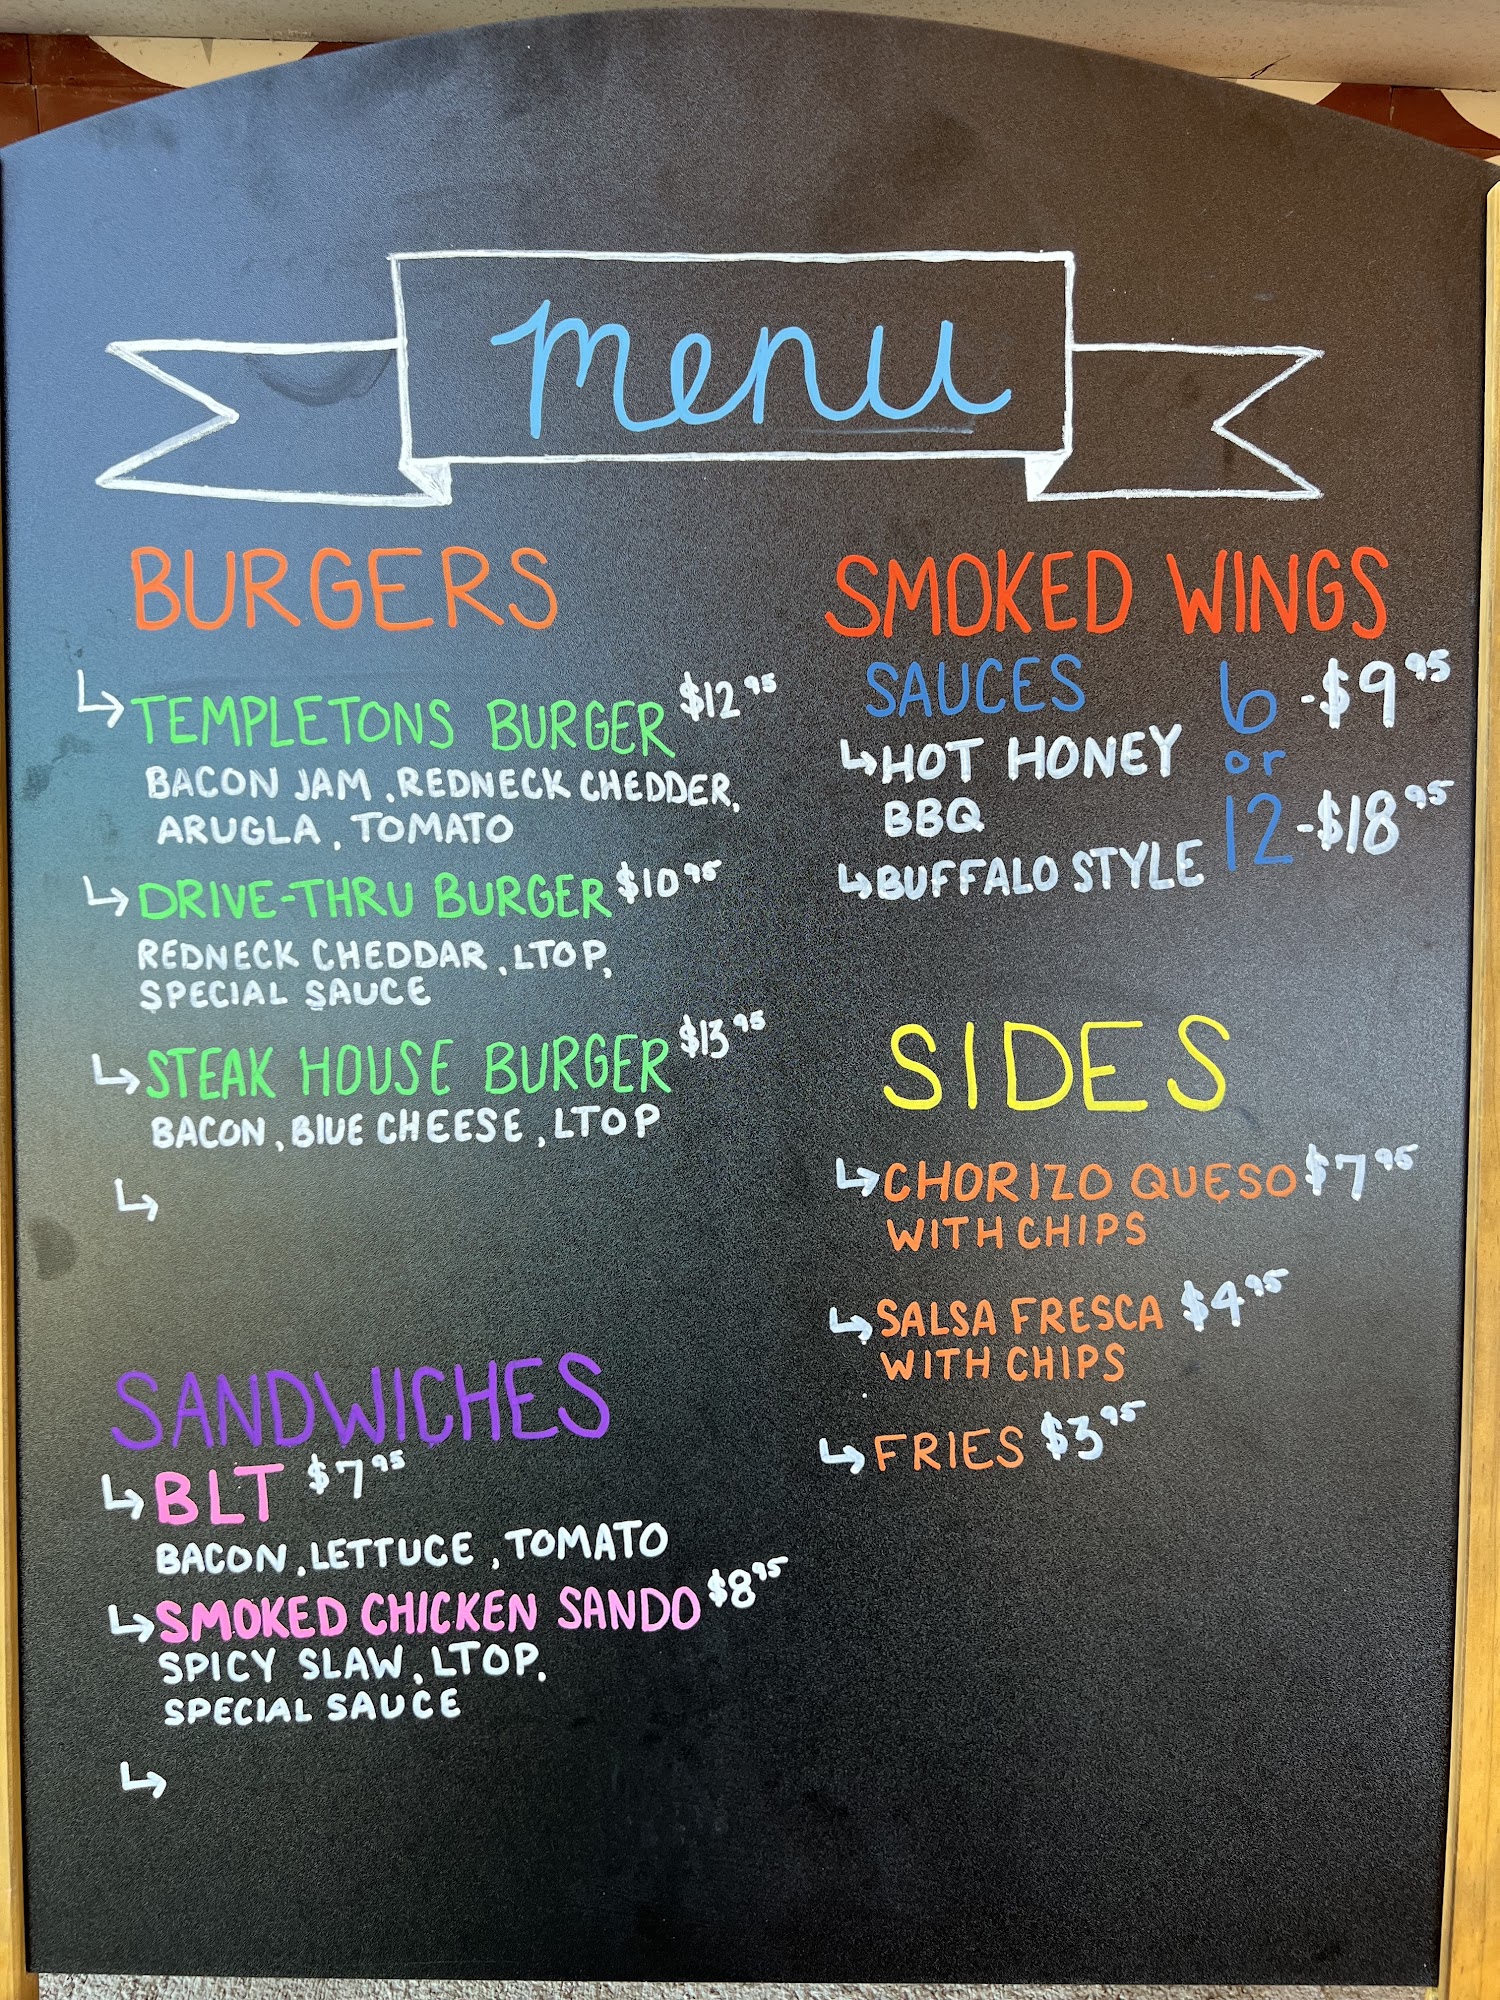 menu
BURGERS
↳ TEMPLETONS BURGER $12.95
BACON JAM, REDNECK CHEDDER,
ARUGLA, TOMATO
↳ DRIVE-THRU BURGER $10.95
REDNECK CHEDDAR, LTOP,
SPECIAL SAUCE
↳ STEAK HOUSE BURGER $13.95
BACON, BLUE CHEESE, LTOP
↳
SANDWICHES
↳ BLT $7.95
BACON, LETTUCE, TOMATO
↳ SMOKED CHICKEN SANDO $8.95
SPICY SLAW, LTOP,
SPECIAL SAUCE
↳
SMOKED WINGS
SAUCES 6 - $9.95
↳ HOT HONEY or
BBQ 12 - $18.95
↳ BUFFALO STYLE
SIDES
↳ CHORIZO QUESO $7.95
WITH CHIPS
↳ SALSA FRESCA $4.95
WITH CHIPS
↳ FRIES $3.95